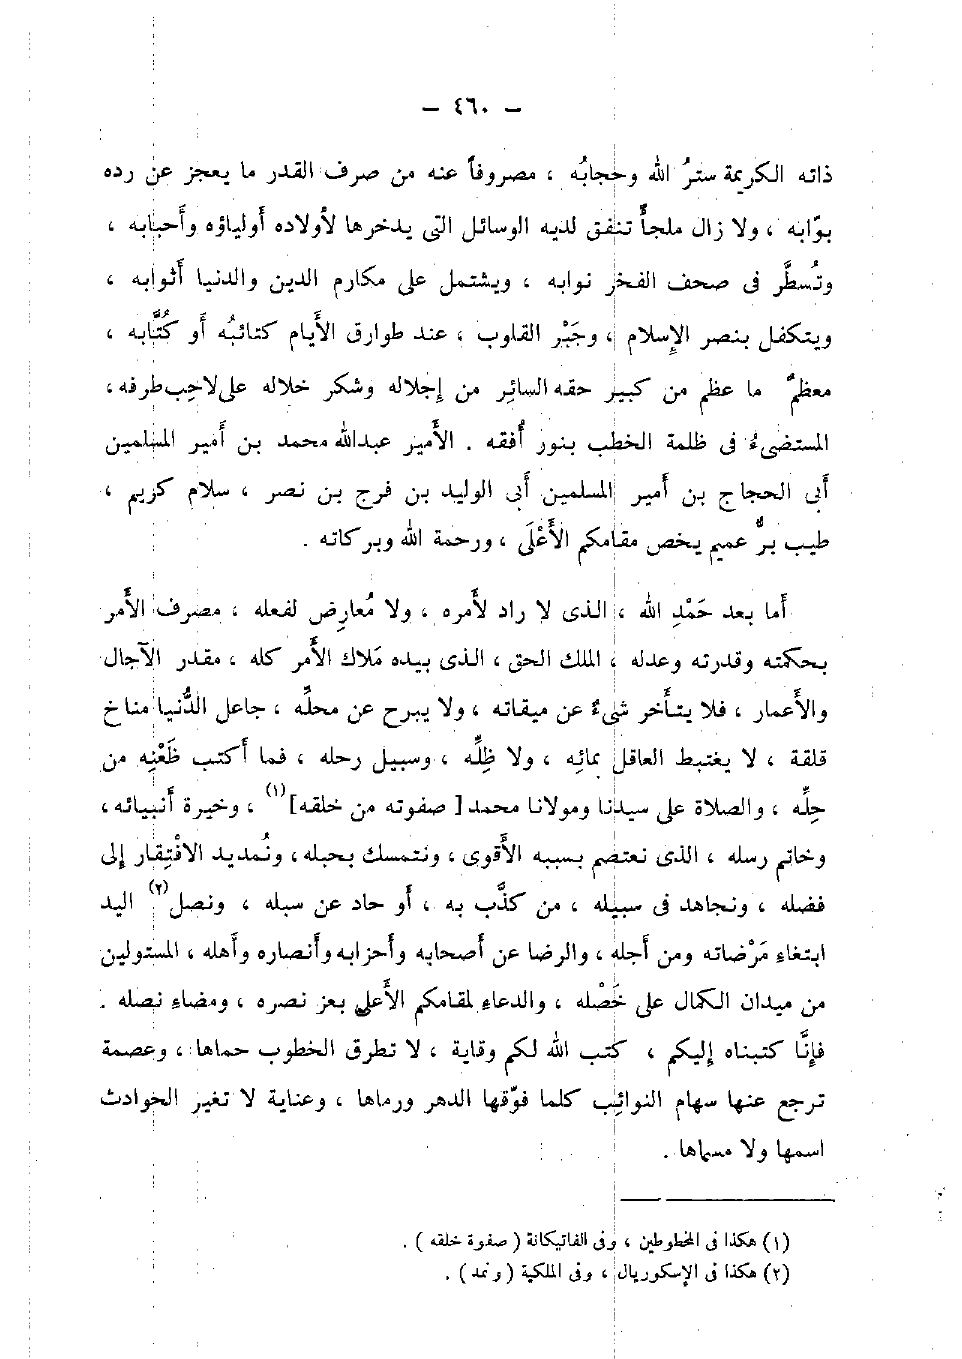 — ٤٦٠ —
ذاته الكريمة سترُ الله وحجابُه ، مصروفاً عنه من صرف القدر ما يعجز عن رده
بوّابه ، ولا زال ملجأً تنفق لديه الوسائل التى يدخرها لأولاده أولياؤه وأحبابه ،
وتُسطَّر فى صحف الفخر نوابه ، ويشتمل على مكارم الدين والدنيا أثوابه ،
ويتكفل بنصر الإسلام ، وجَبْر القلوب ، عند طوارق الأيام كتائبُه أو كُتَّابه ،
معظمُ ما عظم من كبير حقه السائر من إجلاله وشكر خلاله على لاحِب طرقه ،
المستضىءُ فى ظلمة الخطب بنور أُفقه . الأمير عبدالله محمد بن أمير المسلمين
أبى الحجاج بن أمير المسلمين أبى الوليد بن فرج بن نصر ، سلام كريم ،
طيب برٌّ عميم يخص مقامكم الأَعْلَى ، ورحمة الله وبركاته .
أما بعد حَمْدِ الله ، الذى لا راد لأمره ، ولا مُعارِض لفعله ، مصرف الأمر
بحكمته وقدرته وعدله ، الملك الحق ، الذى بيده مَلاك الأمر كله ، مقدر الآجال
والأعمار ، فلا يتأخر شىءٌ عن ميقاته ، ولا يبرح عن محلِّه ، جاعل الدُّنيا مناخ
قلقة ، لا يغتبط العاقل بمائِه ، ولا ظِلِّه ، وسبيل رحله ، فما أكتب ظَعْنِه من
حِلِّه ، والصلاة على سيدنا ومولانا محمد [ صفوته من خلقه ](١) ، وخيرة أنبيائه ،
وخاتم رسله ، الذى نعتصم بسببه الأقوى ، ونتمسك بحبله ، ونُمديد الافْتِقار إلى
فضله ، ونجاهد فى سبيله ، من كذَّب به ، أو حاد عن سبله ، ونصل(٢) اليد
ابتغاء مَرْضاته ومن أجله ، والرضا عن أصحابه وأحزابه وأنصاره وأهله ، المستولين
من ميدان الكمال على خَصْله ، والدعاء لمقامكم الأعلى بعز نصره ، ومضاء نصله .
فإنَّا كتبناه إليكم ، كتب الله لكم وقاية ، لا تطرق الخطوب حماها ، وعصمة
ترجع عنها سهام النوائب كلما فوّقها الدهر ورماها ، وعناية لا تغير الحوادث
اسمها ولا مسماها .
(١) هكذا فى المخطوطين ، وفى الفاتيكانة ( صفوة خلقه ) .
(٢) هكذا فى الإسكوريال ، وفى الملكية ( ونمد ) .